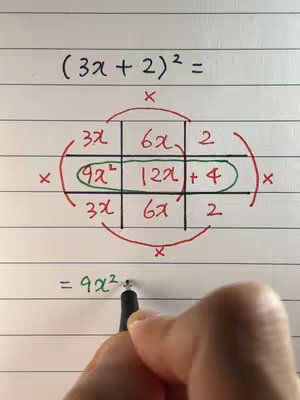 (3x + 2)² =
x
3x 6x 2
x 9x² 12x + 4 x
3x 6x 2
x
= 9x²